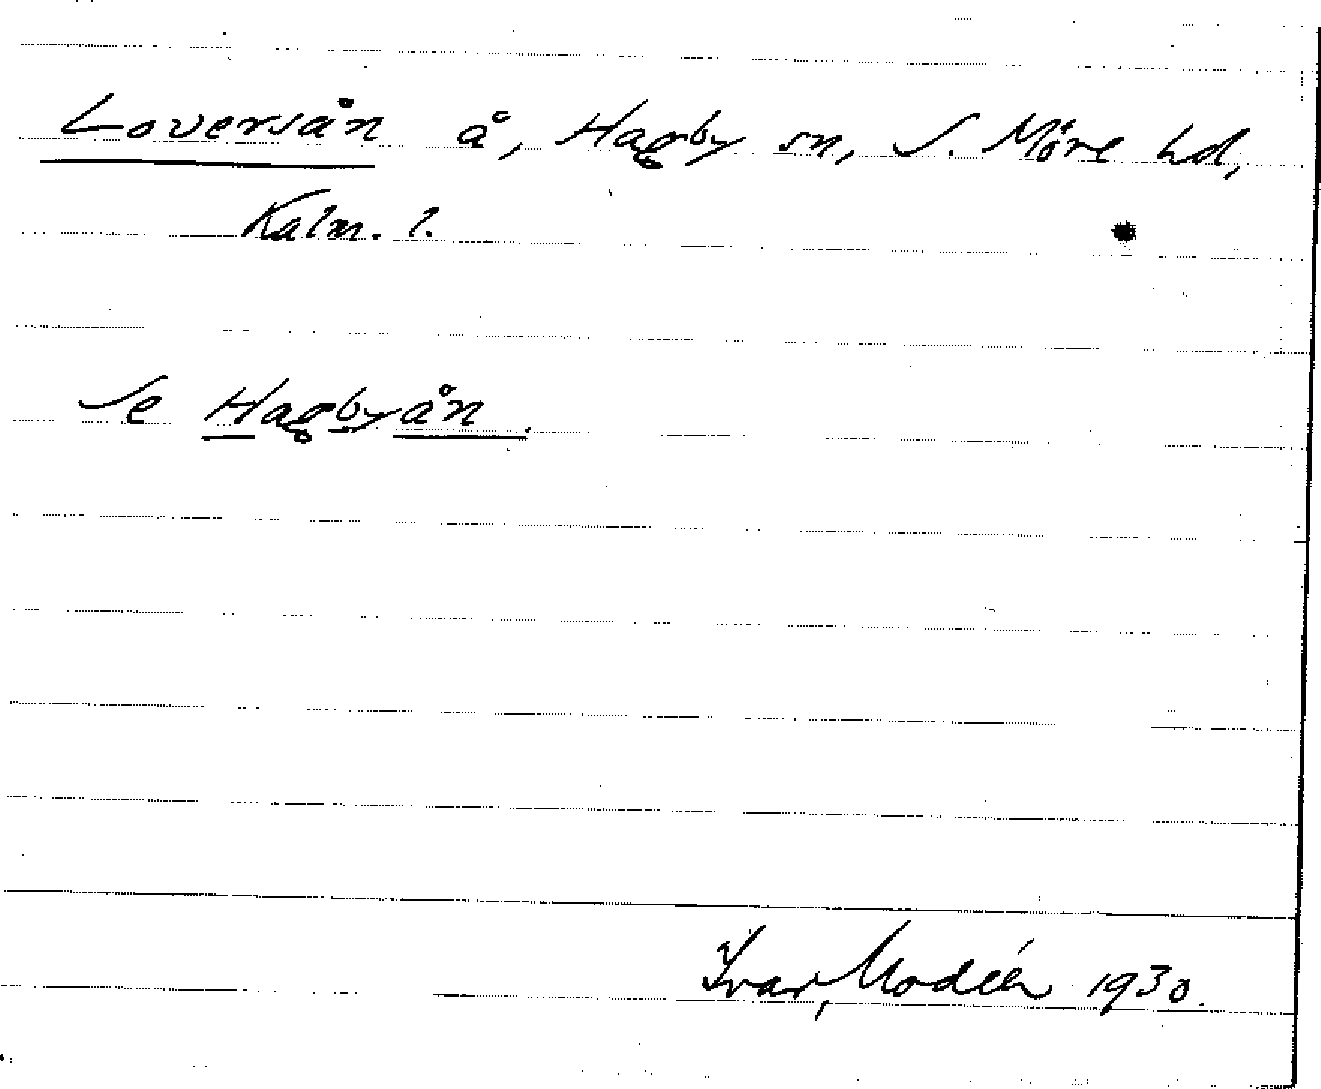 Loversån å, Hagby sn, S. Möre hd,
Kalm. l.
Se Hagbyån.
Ivar Modéer 1930.